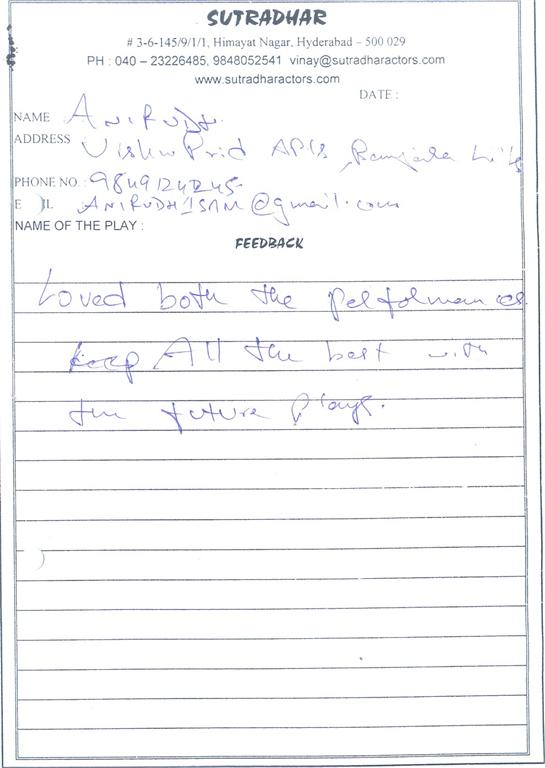 SUTRADHAR
# 3-6-145/9/1/1, Himayat Nagar, Hyderabad – 500 029
PH : 040 – 23226485, 9848052541 vinay@sutradharactors.com
www.sutradharactors.com
DATE :
NAME ANIRUDH
ADDRESS
PHONE NO. :
E IL
NAME OF THE PLAY :
FEEDBACK
Loved both the performances
keep All the best with
the future plays.